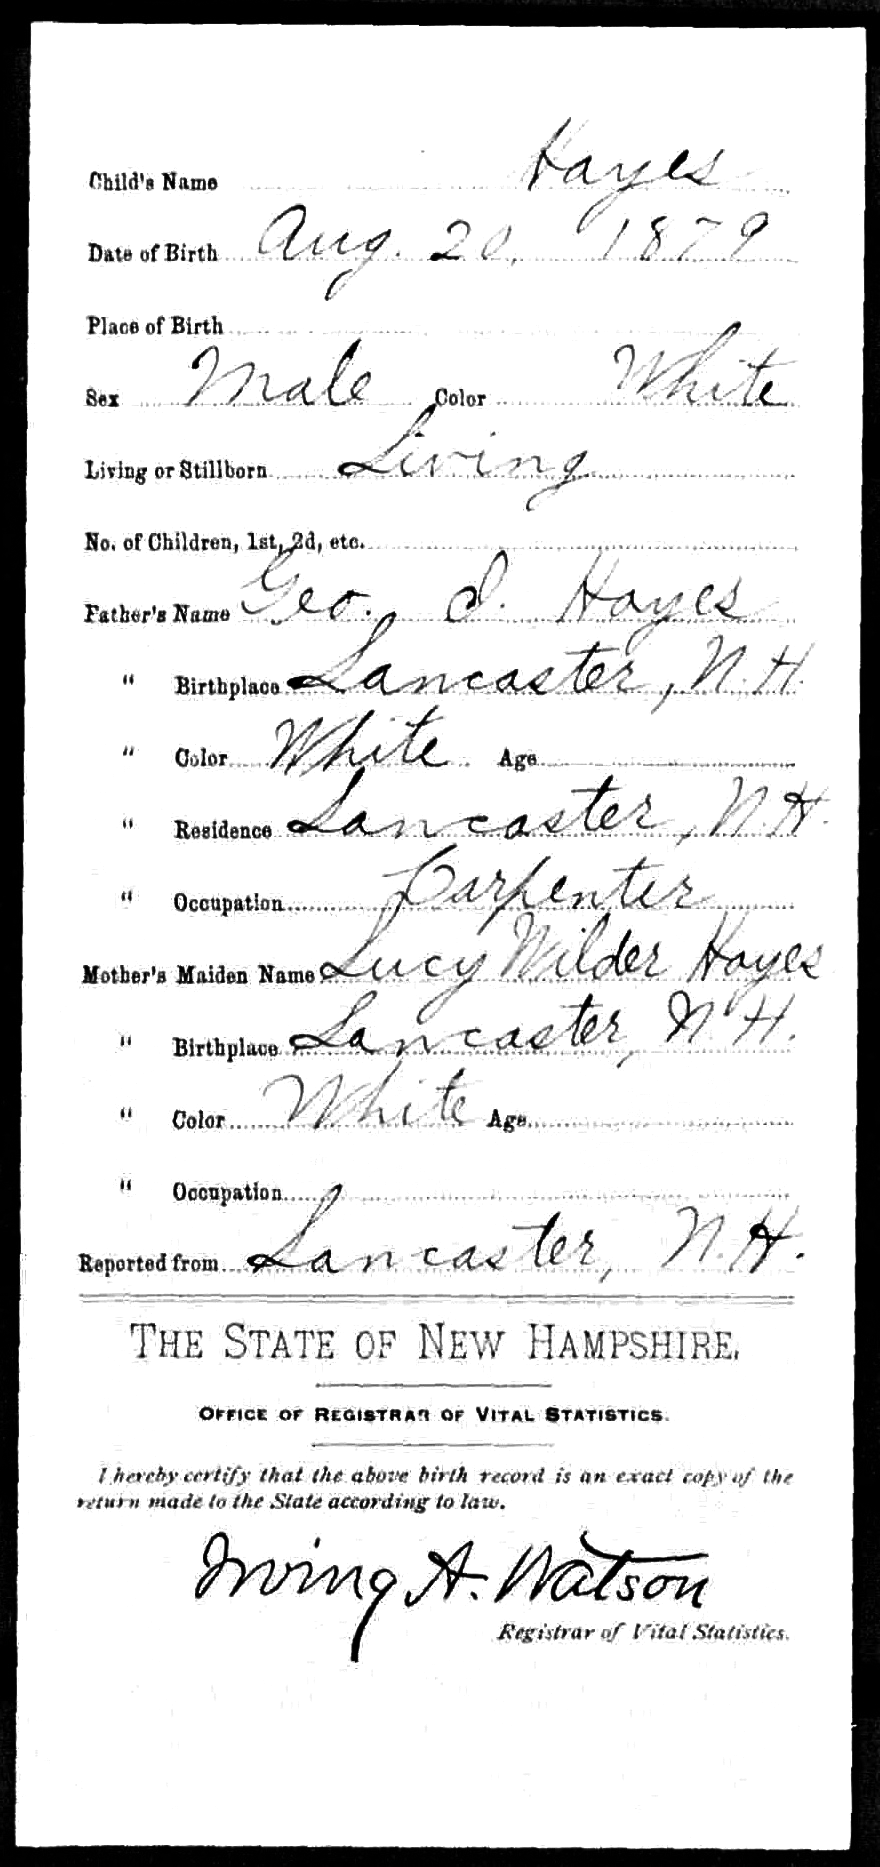 Child's Name Hayes
Date of Birth Aug. 20, 1879
Place of Birth
Sex Male Color White
Living or Stillborn Living
No. of Children, 1st, 2d, etc.
Father's Name Geo. I. Hayes
" Birthplace Lancaster, N.H.
" Color White Age
" Residence Lancaster, N.H.
" Occupation Carpenter
Mother's Maiden Name Lucy Wilder Hayes
" Birthplace Lancaster, N.H.
" Color White Age
" Occupation
Reported from Lancaster, N.H.
THE STATE OF NEW HAMPSHIRE.
OFFICE OF REGISTRAR OF VITAL STATISTICS.
I hereby certify that the above birth record is an exact copy of the
return made to the State according to law.
Irving A. Watson
Registrar of Vital Statistics.